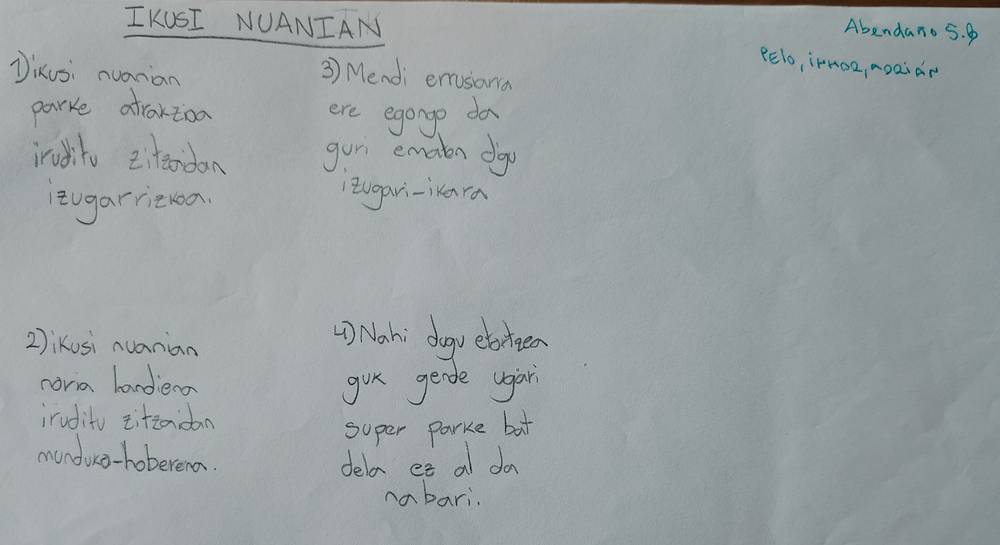 IKUSI NUANIAN
Abendaño 5.
PELO, iHHOR, ADRIÁN
1) ikusi nuanian
parke atrakzioa
iruditu zitzaidan
izugarrizkoa.
2) ikusi nuanian
noria handiena
iruditu zitzaidan
munduko-hoberena.
3) Mendi errusiarra
ere egongo da
guri ematen digu
izugari-ikara
4) Nahi dugu etortzea
guk gende ugari
super parke bat
dela ez al da
nabari.